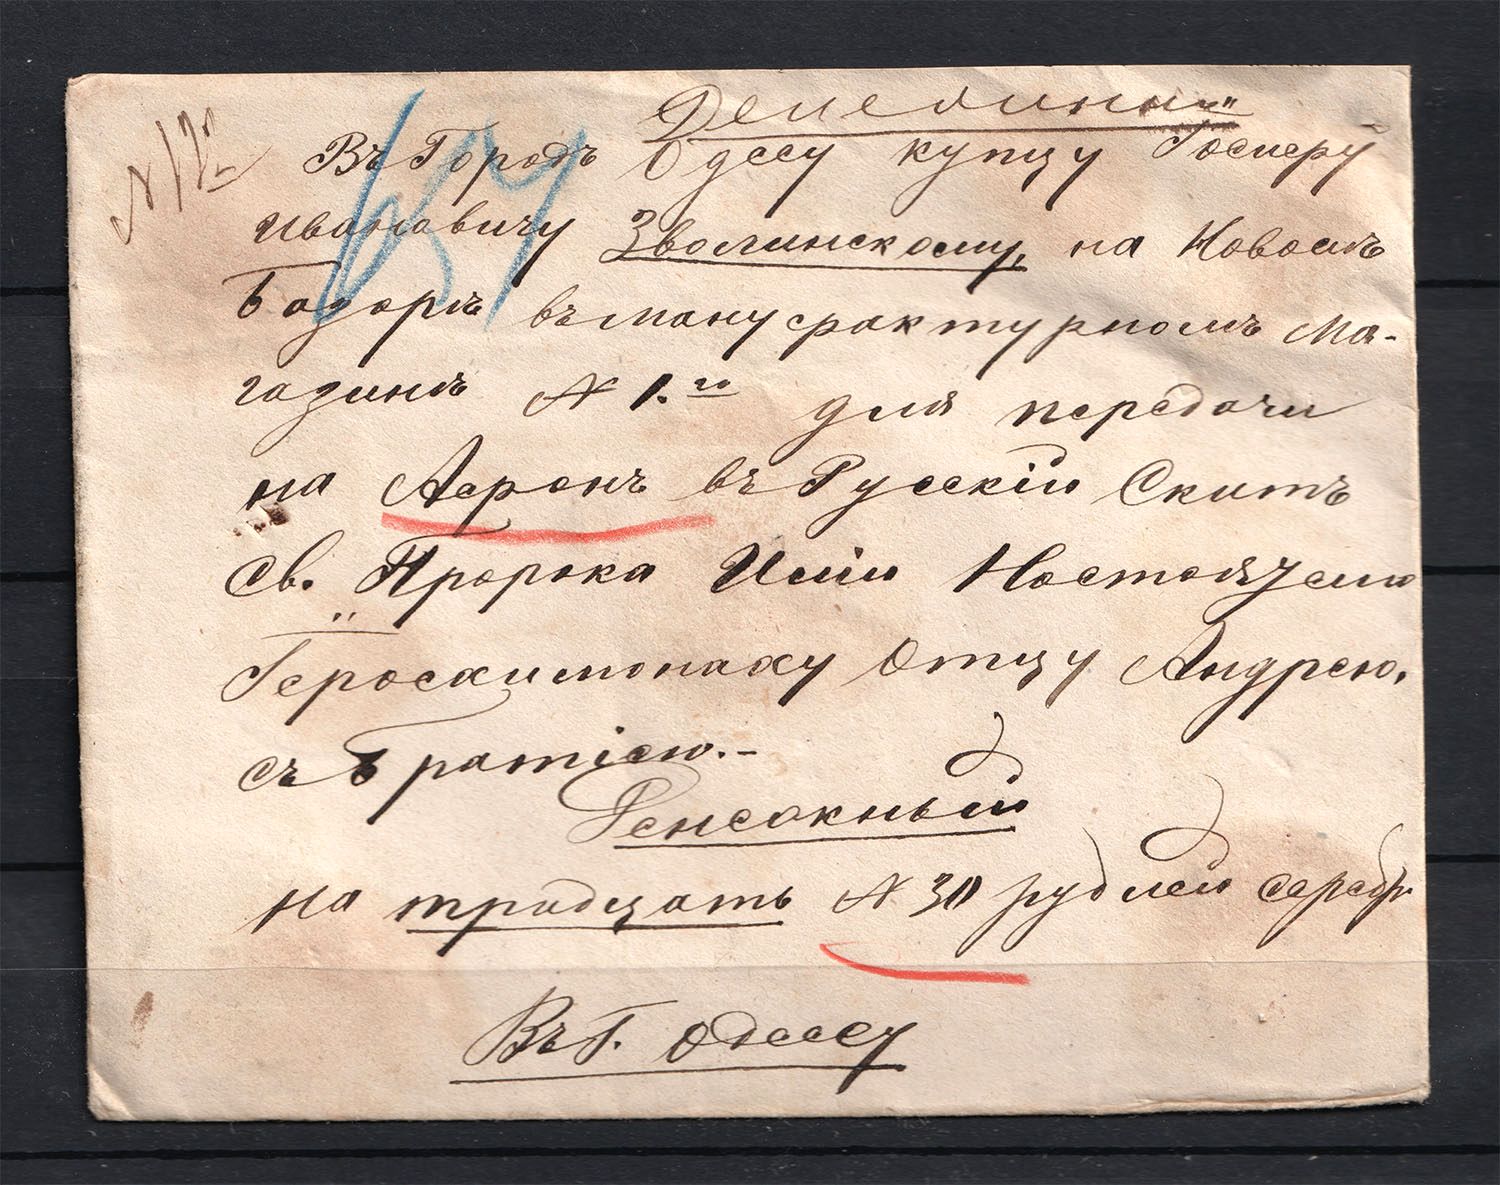 Денежный
Въ Городъ Одессу купцу Госперу
Ивановичу Зволинскому, на Новомъ
Базарѣ въ мануфактурномъ Ма-
газинѣ № 1.го для передачи
на Афонъ въ Русскій Скитъ
Св. Пророка Иліи Настоятелю
Іеросхимонаху Отцу Андрею,
съ Братіею.-
на тридцать № 30 рублей серебр.
Въ Г. Одессу